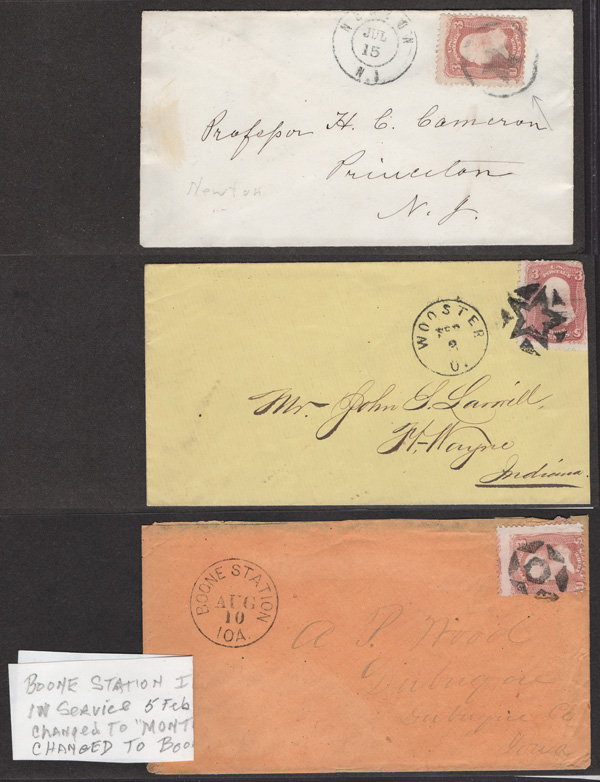 NEWTON
JUL
15
N.J.
3 3
Professor H. C. Cameron
Princeton
N. J.
Newton
3 U.S. POSTAGE 3
WOOSTER
2
O.
Mr. John S.
Ft. Wayne
Indiana
BOONE STATION
AUG
10
IOA.
A. P. Wood
Dubuque
Dubuque Co
Iowa
BOONE STATION I
IN SERVICE 5 Feb
changed To "MONT
CHANGED TO BOO